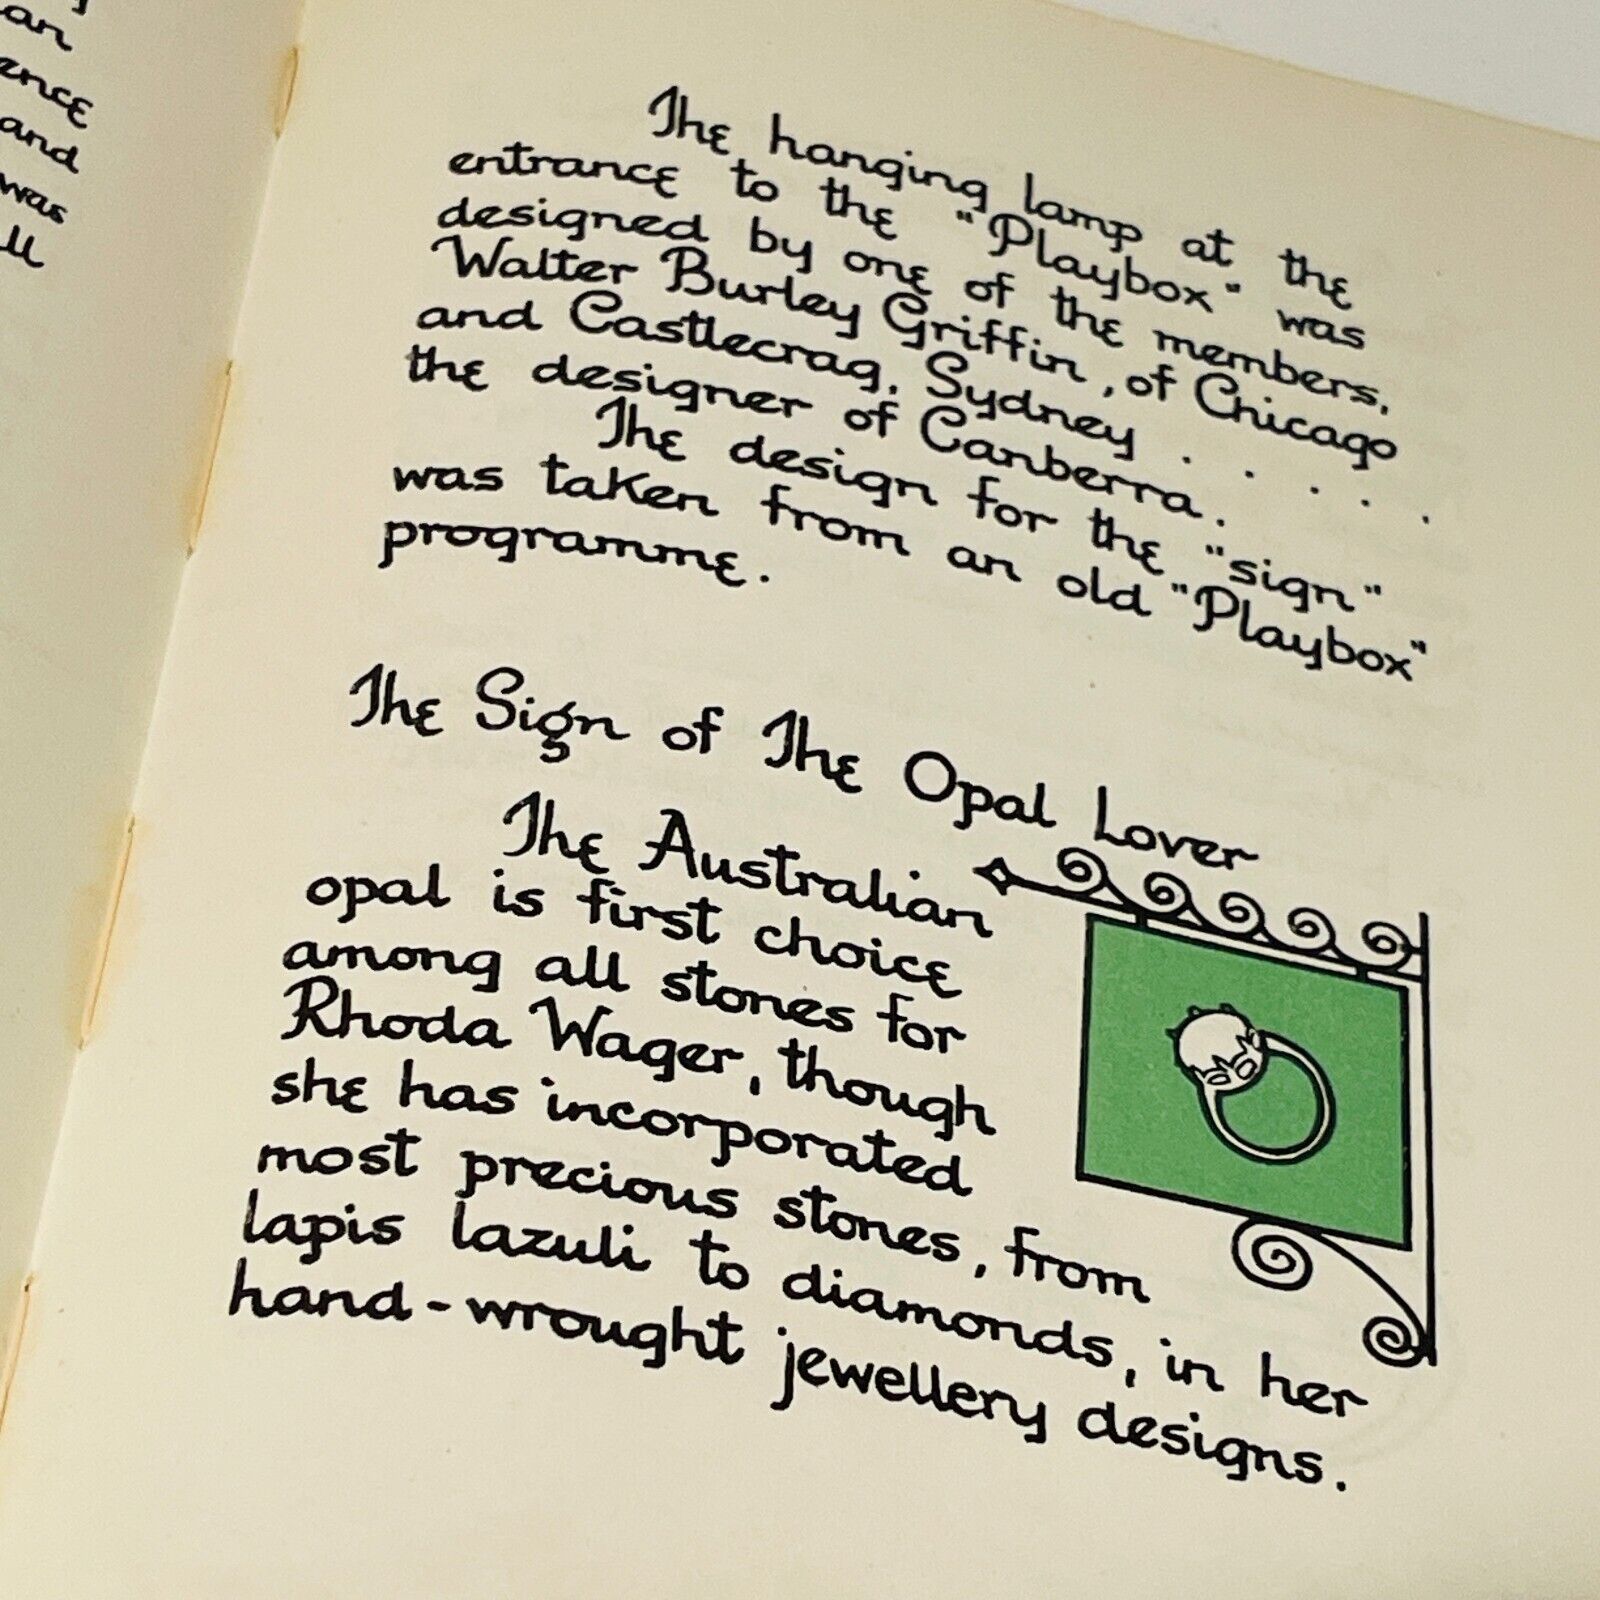 an
ence
and
was
ll
The hanging lamp at the
entrance to the "Playbox" was
designed by one of the members,
Walter Burley Griffin, of Chicago
and Castlecrag, Sydney . . . . .
the designer of Canberra.
The design for the "sign"
was taken from an old "Playbox"
programme.
The Sign of The Opal Lover
The Australian
opal is first choice
among all stones for
Rhoda Wager, though
she has incorporated
most precious stones, from
lapis lazuli to diamonds, in her
hand-wrought jewellery designs.